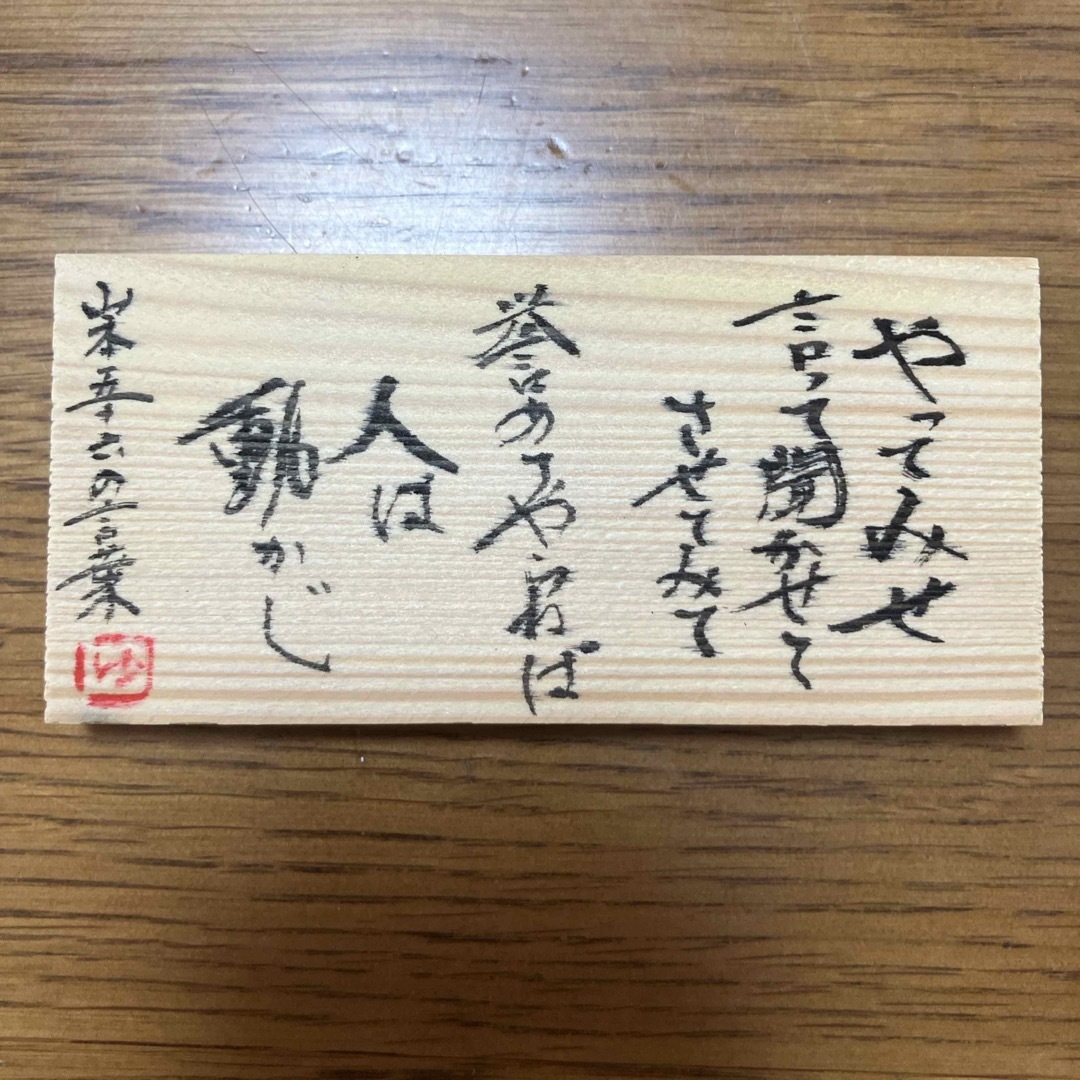 やってみせ
言って聞かせて
させてみて
誉めてやらねば
人は
動かじ
山本五十六の言葉